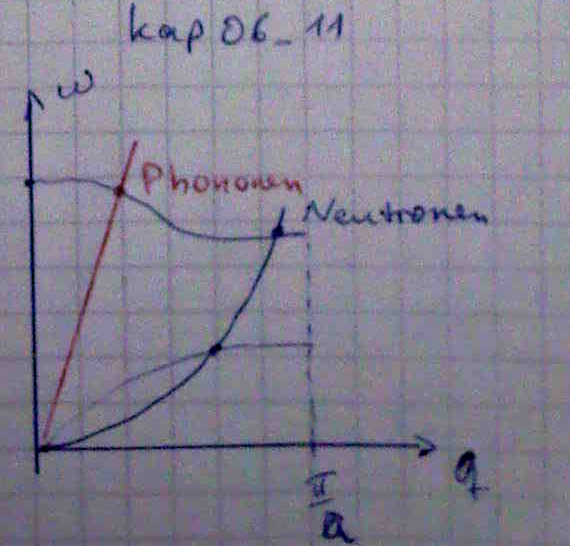 kap 06_11
ω
Phononen
Neutronen
q
π
a